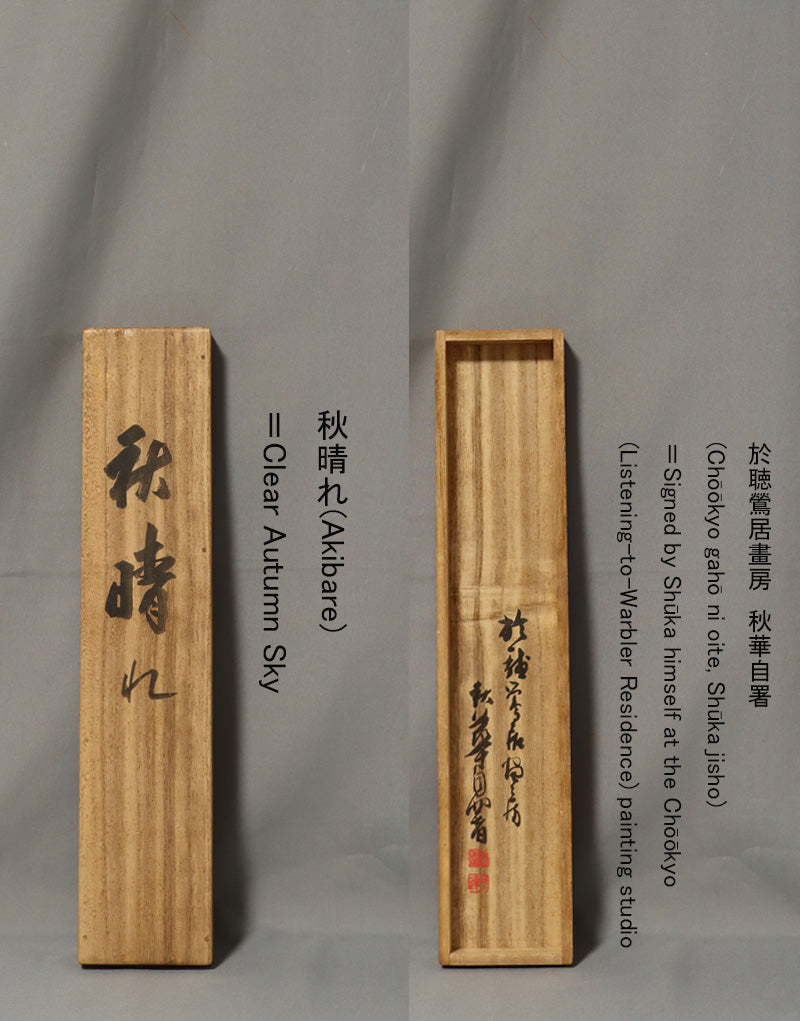 秋晴れ
秋晴れ(Akibare)
=Clear Autumn Sky
於聴鶯居畫房
秋華自署
於聴鶯居畫房 秋華自署
(Chōōkyo gahō ni oite, Shūka jisho)
=Signed by Shūka himself at the Chōōkyo
(Listening-to-Warbler Residence) painting studio